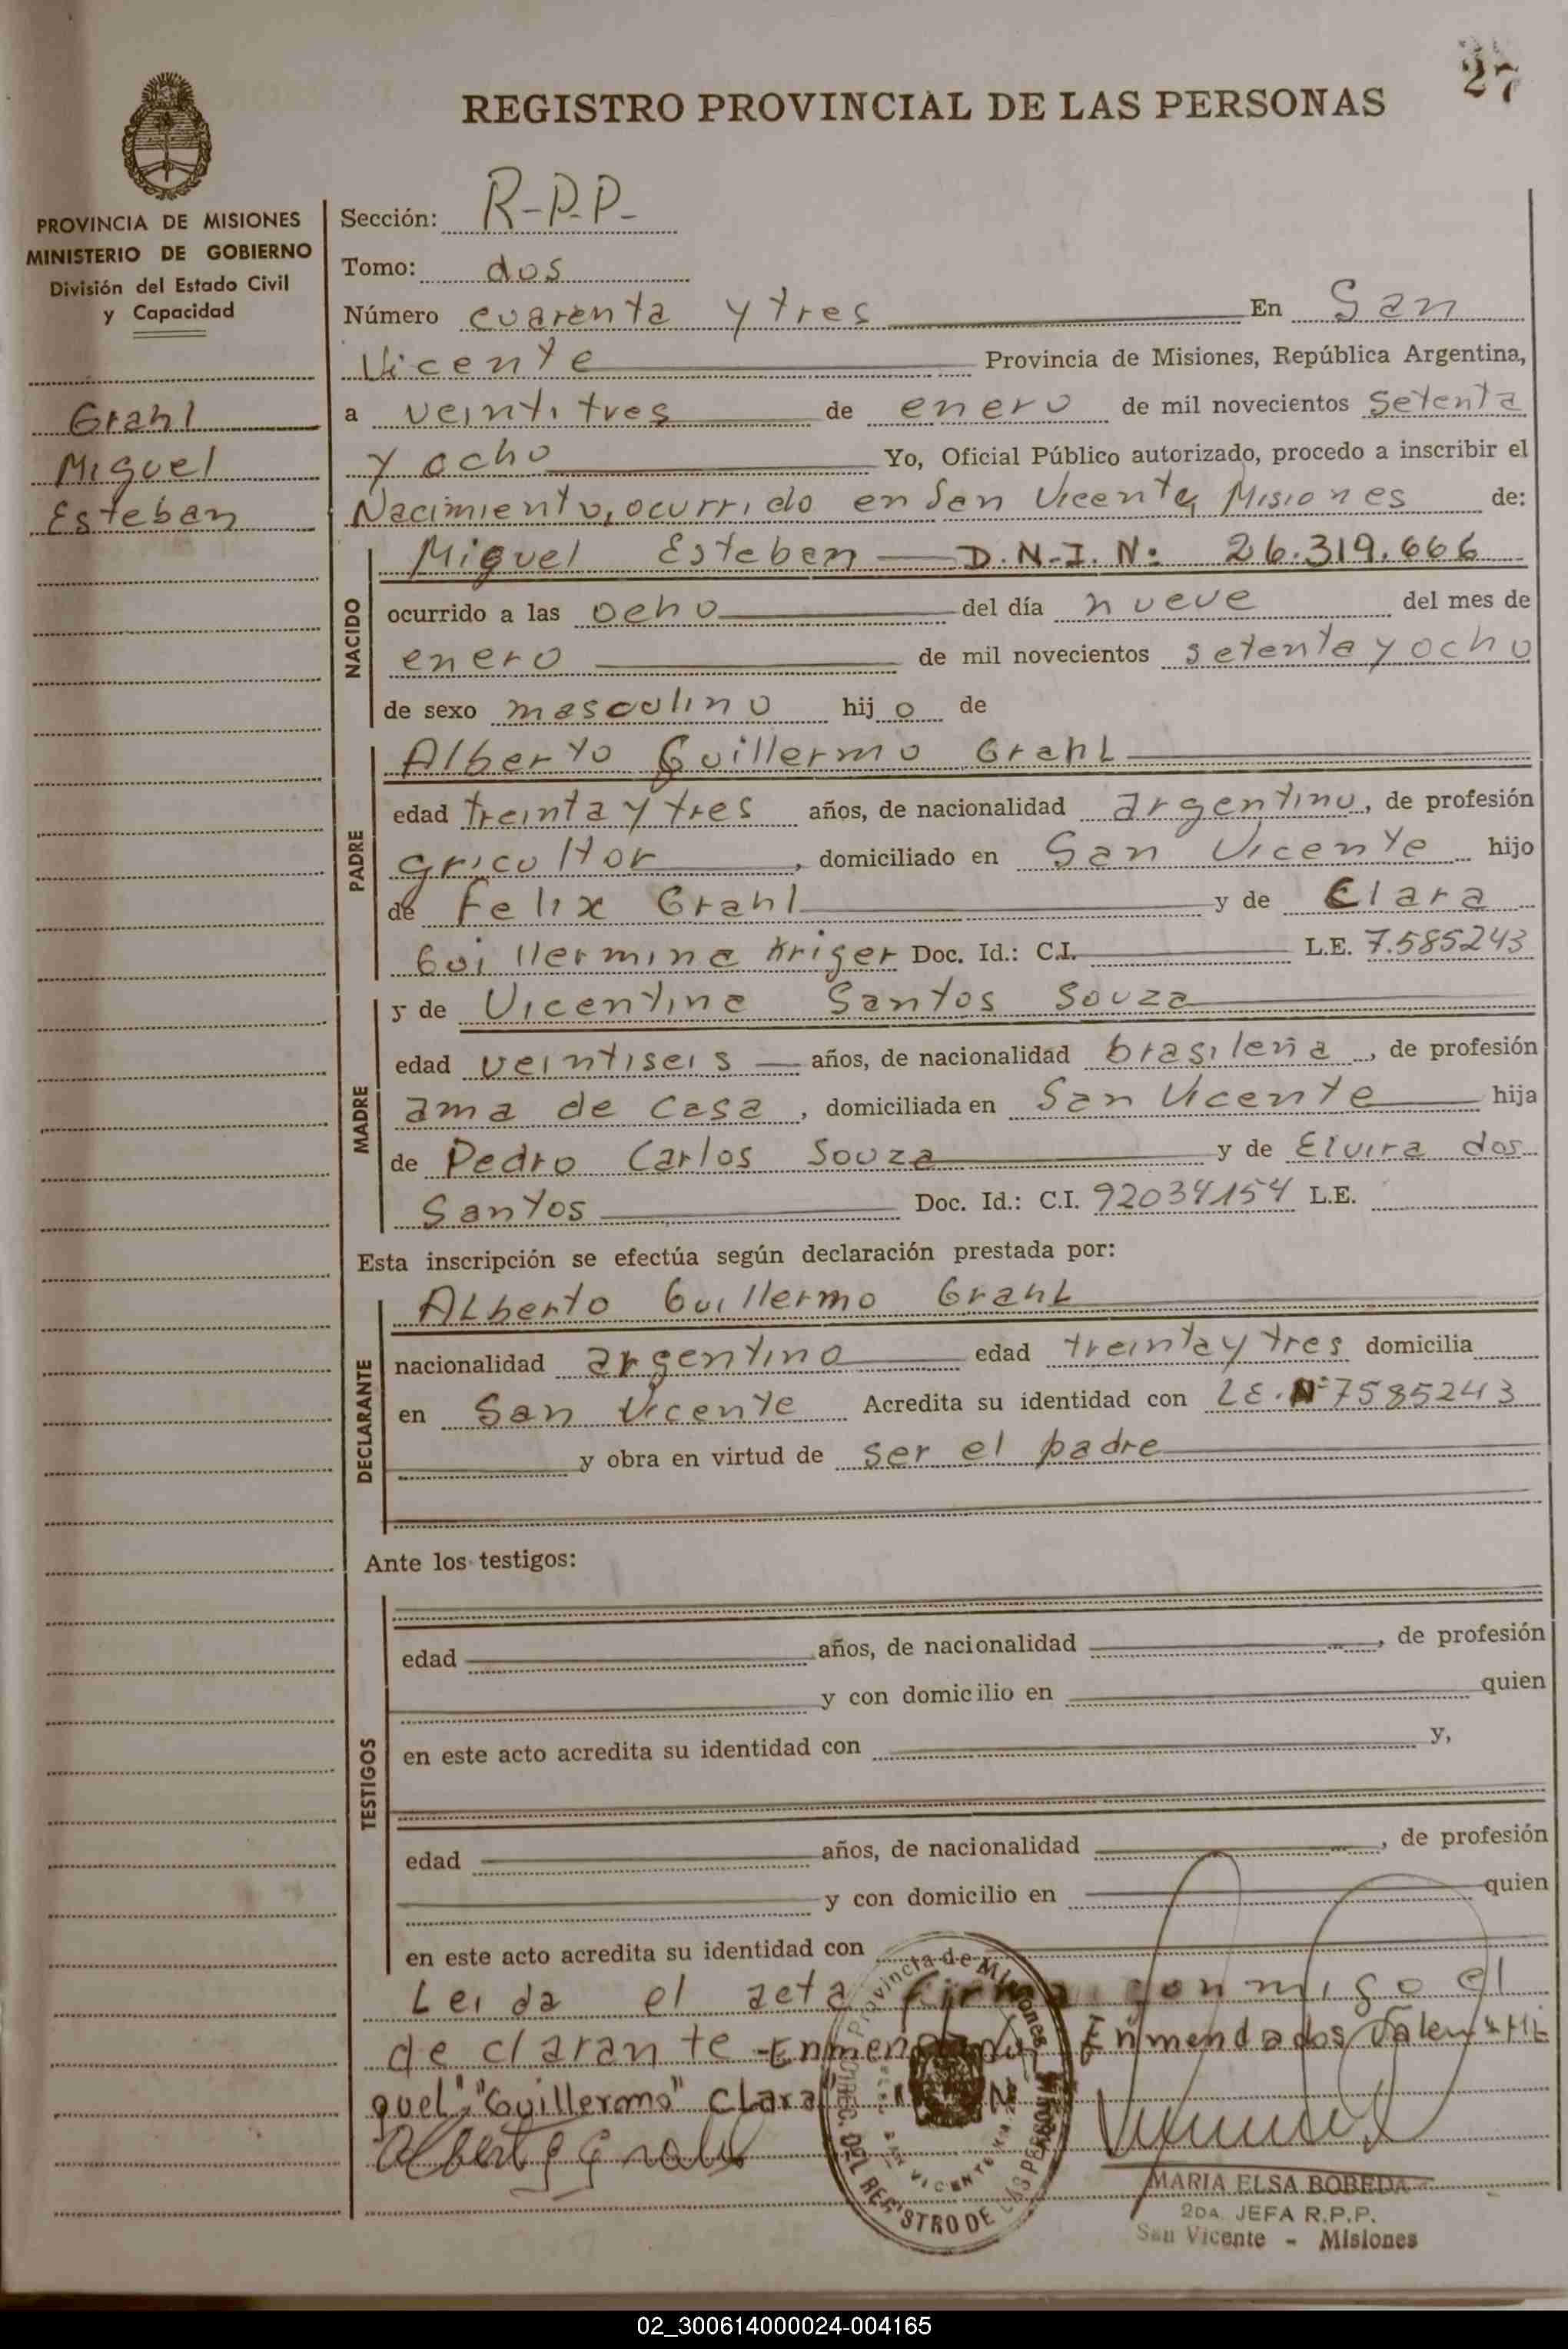 27
REGISTRO PROVINCIAL DE LAS PERSONAS
PROVINCIA DE MISIONES
MINISTERIO DE GOBIERNO
División del Estado Civil
y Capacidad
Grahl
Miguel
Esteban
Sección: R-P.P-
Tomo: dos
Número cuarenta y tres En San
Vicente Provincia de Misiones, República Argentina,
a veintitres de enero de mil novecientos setenta
y ocho Yo, Oficial Público autorizado, procedo a inscribir el
Nacimiento, ocurrido en San Vicente, Misiones de:
NACIDO
Miguel Esteban D.N.I. N: 26.319.666
ocurrido a las ocho del día nueve del mes de
enero de mil novecientos setenta y ocho
de sexo masculino hijo de
PADRE
Alberto Guillermo Grahl
edad treinta y tres años, de nacionalidad argentino, de profesión
gricultor, domiciliado en San Vicente hijo
de Felix Grahl y de Clara
Guillermina Kriger Doc. Id.: C.I. L.E. 7.585243
MADRE
y de Vicentina Santos Souza
edad veintiseis años, de nacionalidad brasileña, de profesión
ama de casa, domiciliada en San Vicente hija
de Pedro Carlos Souza y de Elvira dos
Santos Doc. Id.: C.I. 92034154 L.E.
Esta inscripción se efectúa según declaración prestada por:
DECLARANTE
Alberto Guillermo Grahl
nacionalidad argentino edad treinta y tres domicilia
en San Vicente Acredita su identidad con LE. Nº 7585243
y obra en virtud de ser el padre
Ante los testigos:
TESTIGOS
edad años, de nacionalidad , de profesión
y con domicilio en quien
en este acto acredita su identidad con y,
edad años, de nacionalidad , de profesión
y con domicilio en quien
en este acto acredita su identidad con
Leida el acta firma conmigo el
declarante - Enmendados Valen "Mi
guel", "Guillermo" Clara"
Provincia de Misiones
DIREC. DEL REGISTRO DE LAS PERSONAS
SAN VICENTE
Alberto G Grahl
MARIA ELSA BOBEDA
2DA. JEFA R.P.P.
San Vicente - Misiones
02_300614000024-004165